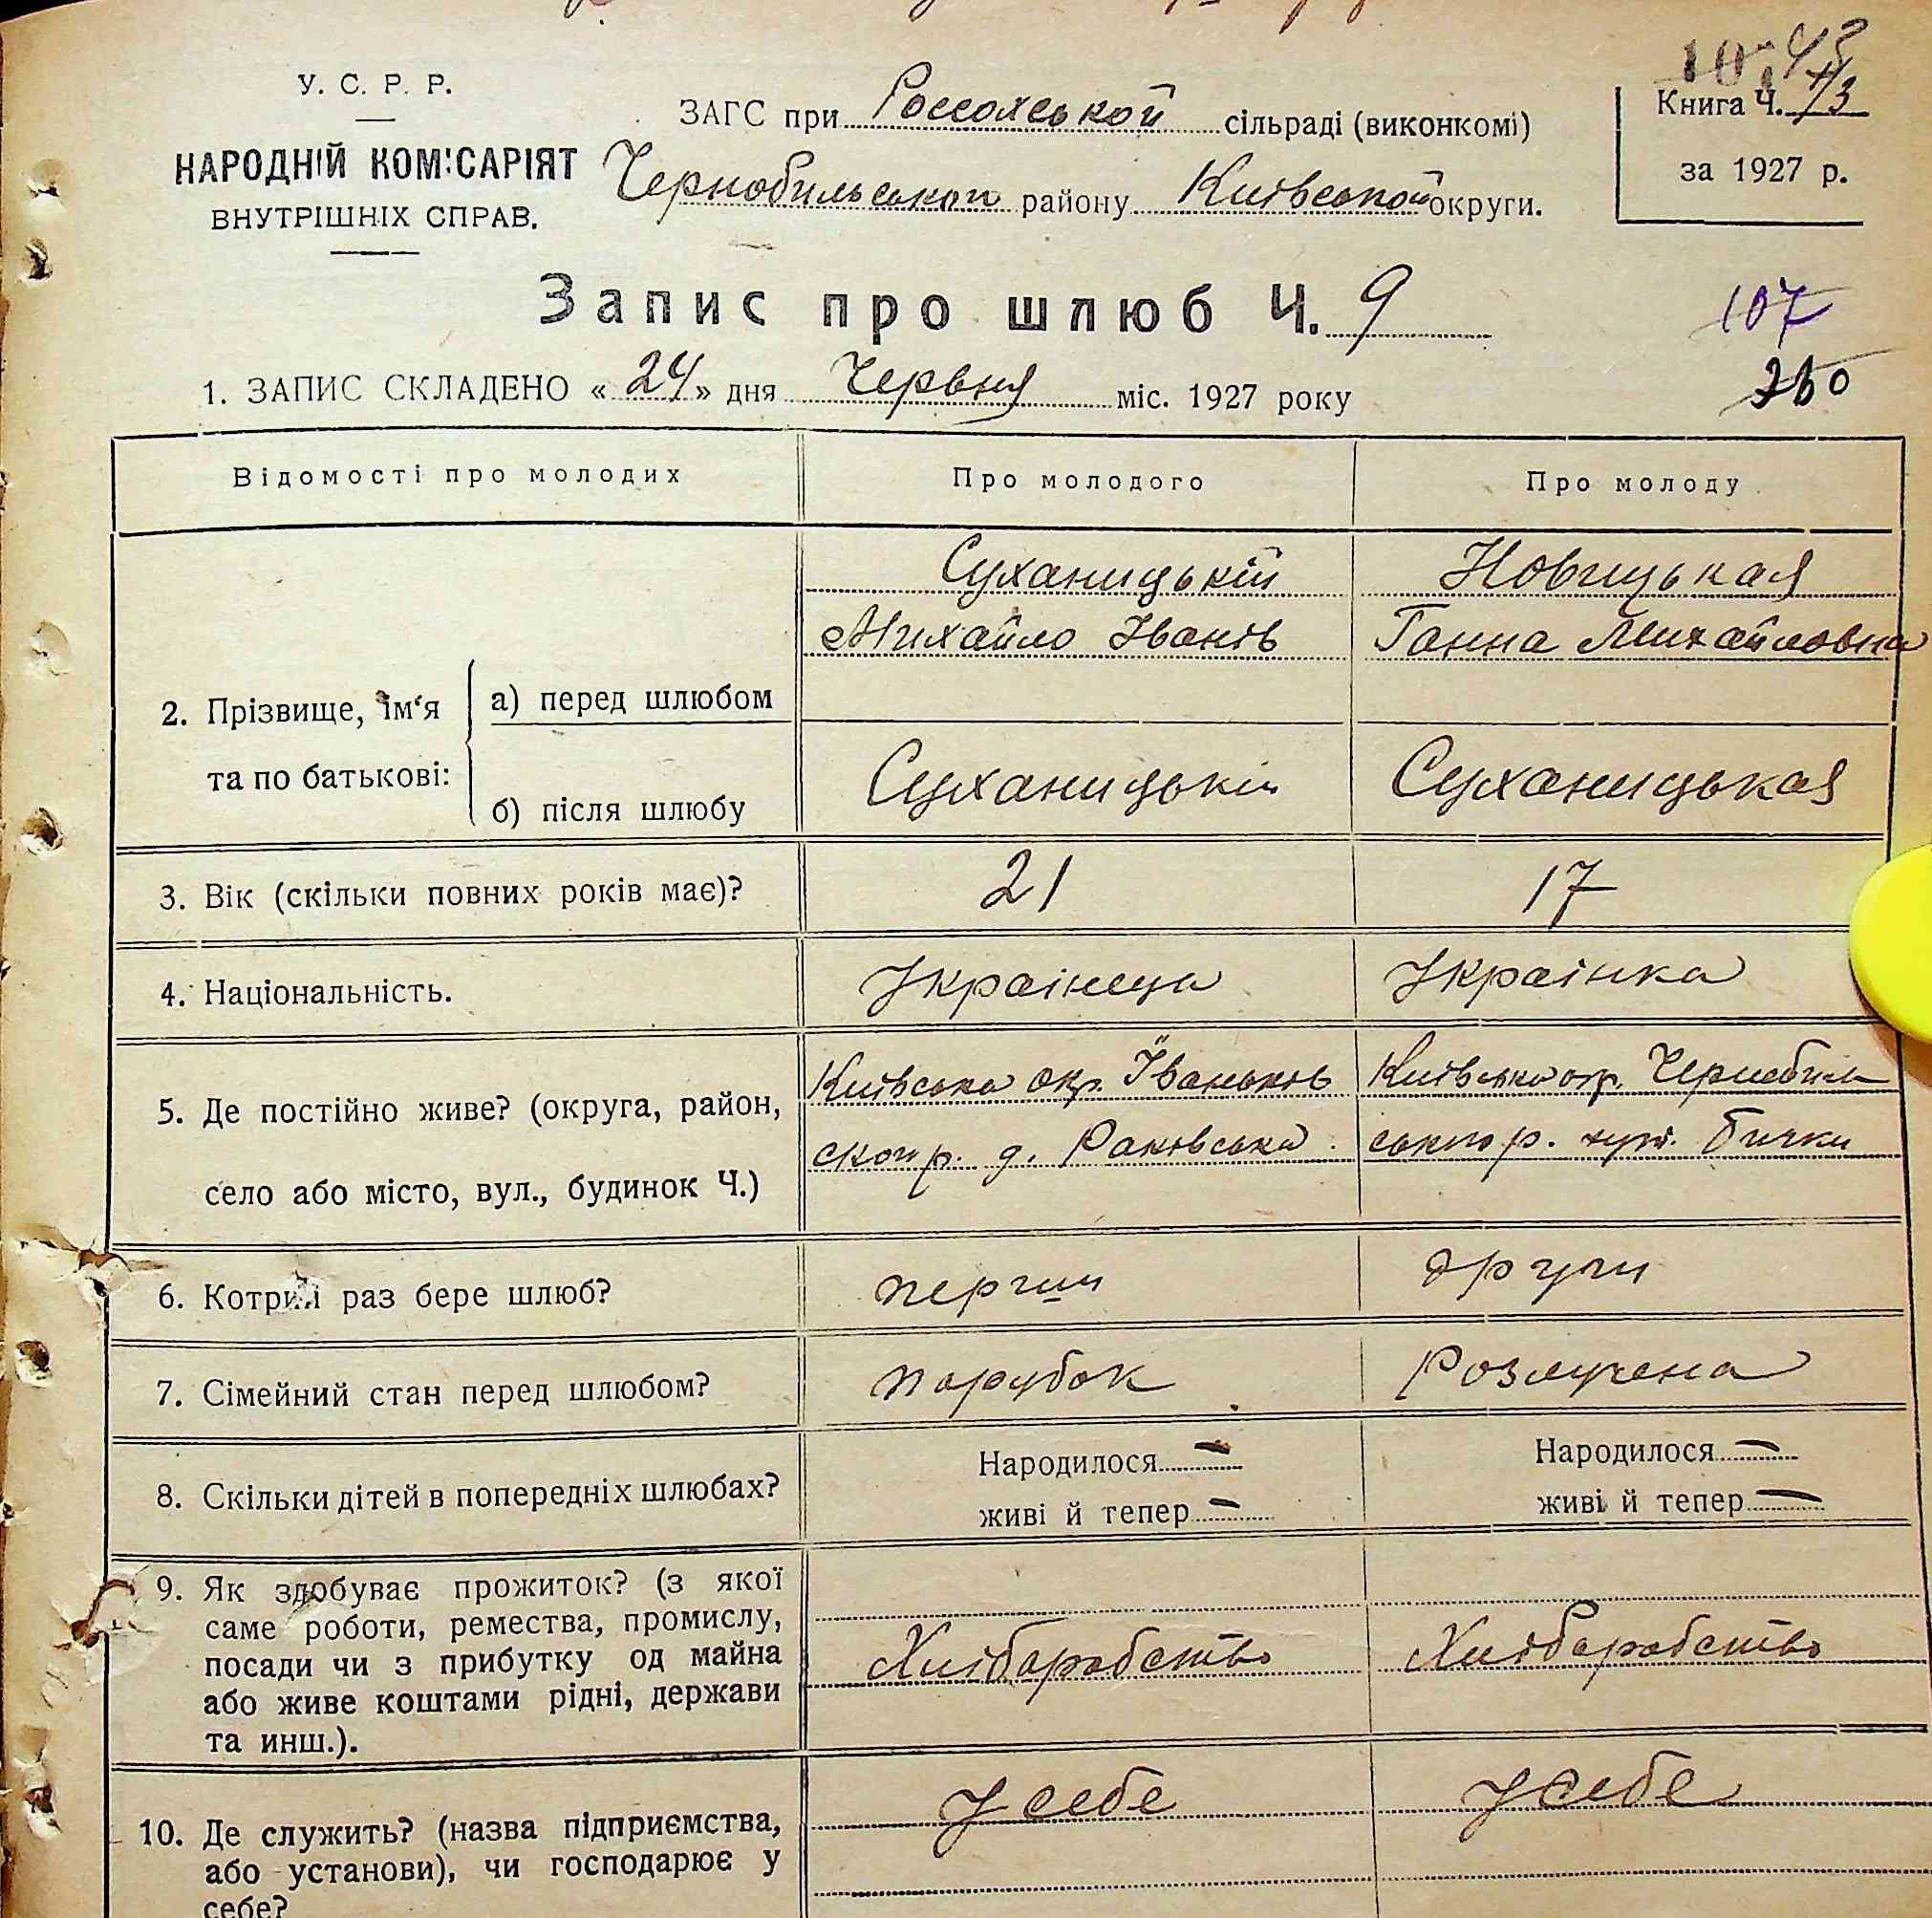 У. С. Р. Р.
НАРОДНІЙ КОМІСАРІЯТ
ВНУТРІШНІХ СПРАВ.
ЗАГС при Россохської сільраді (виконкомі)
Чернобильської району Київської округи.
Книга Ч.
за 1927 р.
Запис про шлюб Ч. 9
107
1. ЗАПИС СКЛАДЕНО « 24 » дня Червня міс. 1927 року
Відомості про молодих Про молодого Про молоду
Суханицькій Новицькая
Михайло Іванів Ганна Михайловна
2. Прізвище, ім'я а) перед шлюбом
та по батькові: б) після шлюбу
Суханицькій Суханицькая
3. Вік (скільки повних років має)? 21 17
4. Національність. Украінець Украінка
5. Де постійно живе? (округа, район,
село або місто, вул., будинок Ч.)
Київська окр. Їваньков Київська окр. Чернобиль
ској р. д. Раковська ського р. хут. Бички
6. Котрий раз бере шлюб? перши други
7. Сімейний стан перед шлюбом? парубок Розлучена
8. Скільки дітей в попередніх шлюбах? Народилося — Народилося —
живі й тепер — живі й тепер —
9. Як здобуває прожиток? (з якої
саме роботи, ремества, промислу,
посади чи з прибутку од майна
або живе коштами рідні, держави
та инш.).
Хлібаробство Хлібаробство
10. Де служить? (назва підприємства,
або установи), чи господарює у
себе?
У себе У себе